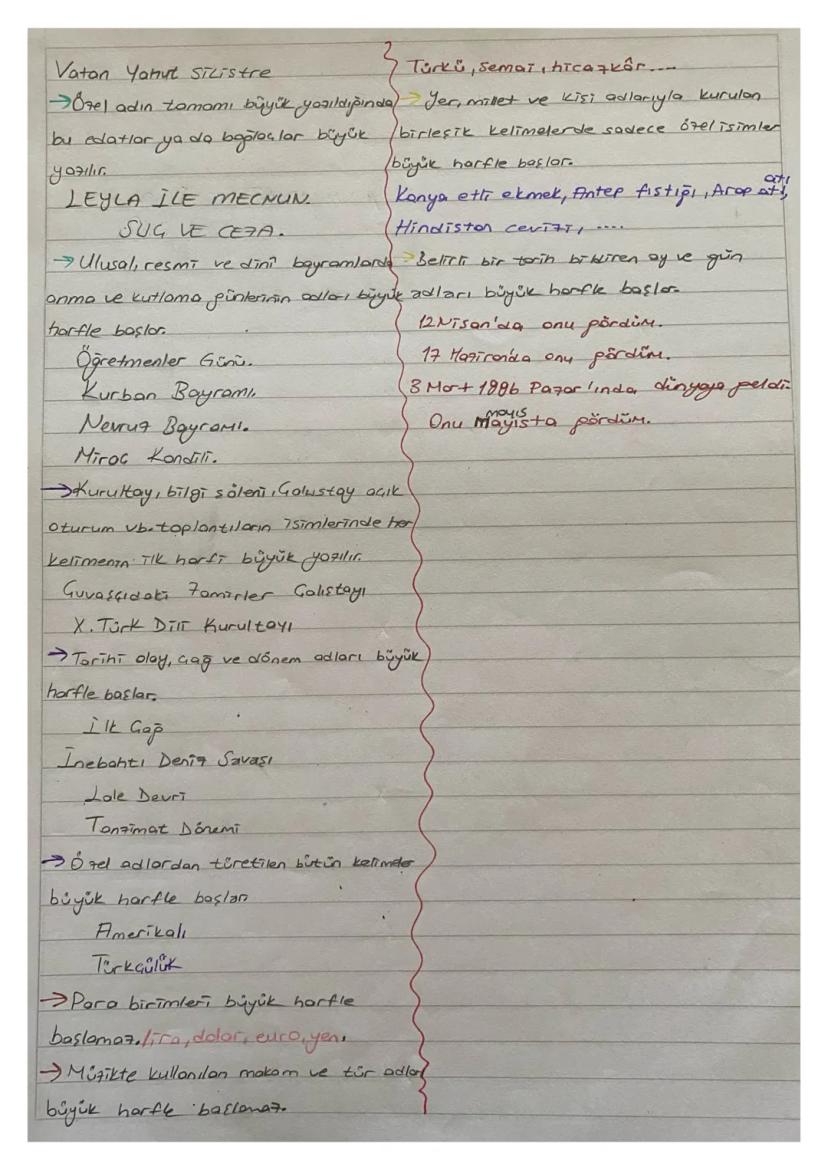 Vatan Yahut Silistre
→Özel adın tamamı büyük yazıldığında
bu edatlar ya da bağlaçlar büyük
yazılır.
LEYLA İLE MECNUN.
SUÇ VE CEZA.
→Ulusal, resmi ve dinî bayramlarda
anma ve kutlama günlerinin adları büyük
harfle başlar.
Öğretmenler Günü.
Kurban Bayramı.
Nevruz Bayramı.
Miraç Kandili.
→Kurultay, bilgi şöleni, Çalıştay açık
oturum vb. toplantıların isimlerinde her
kelimenin ilk harfi büyük yazılır.
Çuvaşçadaki Zamirler Çalıştayı
X. Türk Dili Kurultayı
→Tarihi olay, çağ ve dönem adları büyük
harfle başlar.
İlk Çağ
İnebahtı Deniz Savaşı
Lale Devri
Tanzimat Dönemi
→Özel adlardan türetilen bütün kelimeler
büyük harfle başlar
Amerikalı
Türkçülük
→Para birimleri büyük harfle
başlamaz. lira, dolar, euro, yen.
→Müzikte kullanılan makam ve tür adları
büyük harfle başlamaz.
Türkü, semai, hicazkâr....
→Yer, millet ve kişi adlarıyla kurulan
birleşik kelimelerde sadece özel isimler
büyük harfle başlar.
Konya etli ekmek, Antep fıstığı, Arap atı,
Hindistan cevizi, ....
→Belirli bir tarih bildiren ay ve gün
adları büyük harfle başlar.
12 Nisan'da onu gördüm.
17 Haziran'da onu gördüm.
3 Mart 1996 Pazar'ında dünyaya geldi.
Onu mayısta gördüm.